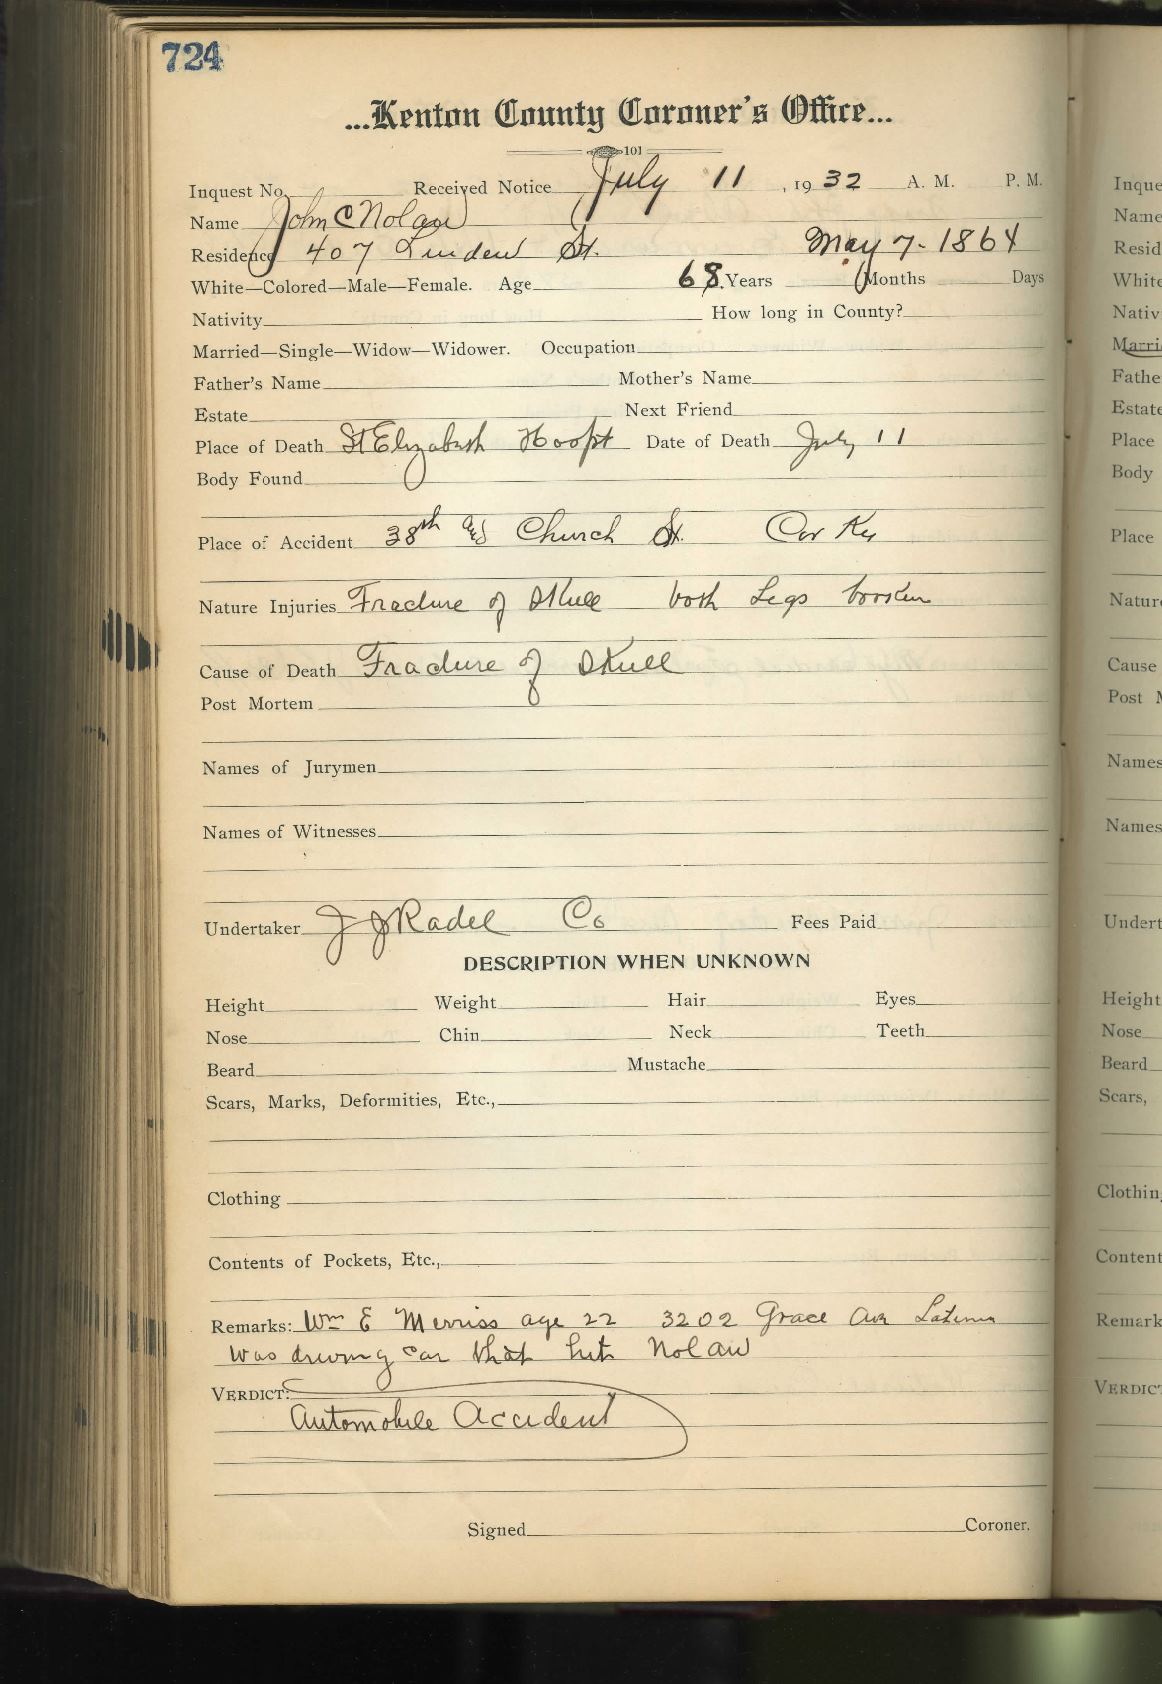 724
...Kenton County Coroner's Office...
101
Inquest No. Received Notice July 11, 1932 A. M. P. M.
Name John C Nolan
Residence 407 Linden St. May 7-1864
White—Colored—Male—Female. Age 68 Years Months Days
Nativity How long in County?
Married—Single—Widow—Widower. Occupation
Father's Name Mother's Name
Estate Next Friend
Place of Death St Elizabeth Hospt Date of Death July 11
Body Found
Place of Accident 38th and Church St. Cov Ky
Nature Injuries Fracture of Skull both Legs broken
Cause of Death Fracture of Skull
Post Mortem
Names of Jurymen
Names of Witnesses
Undertaker J J Radel Co Fees Paid
DESCRIPTION WHEN UNKNOWN
Height Weight Hair Eyes
Nose Chin Neck Teeth
Beard Mustache
Scars, Marks, Deformities, Etc.,
Clothing
Contents of Pockets, Etc.,
Remarks: Wm E Merriss age 22 3202 Grace Ave Latonia
was driving car that hit Nolan
VERDICT:
Automobile Accident
Signed Coroner.
Inque
Name
Resid
White
Nativ
Marri
Fathe
Estate
Place
Body
Place
Nature
Cause
Post M
Names
Names
Undert
Height
Nose
Beard
Scars,
Clothin
Content
Remark
VERDICT